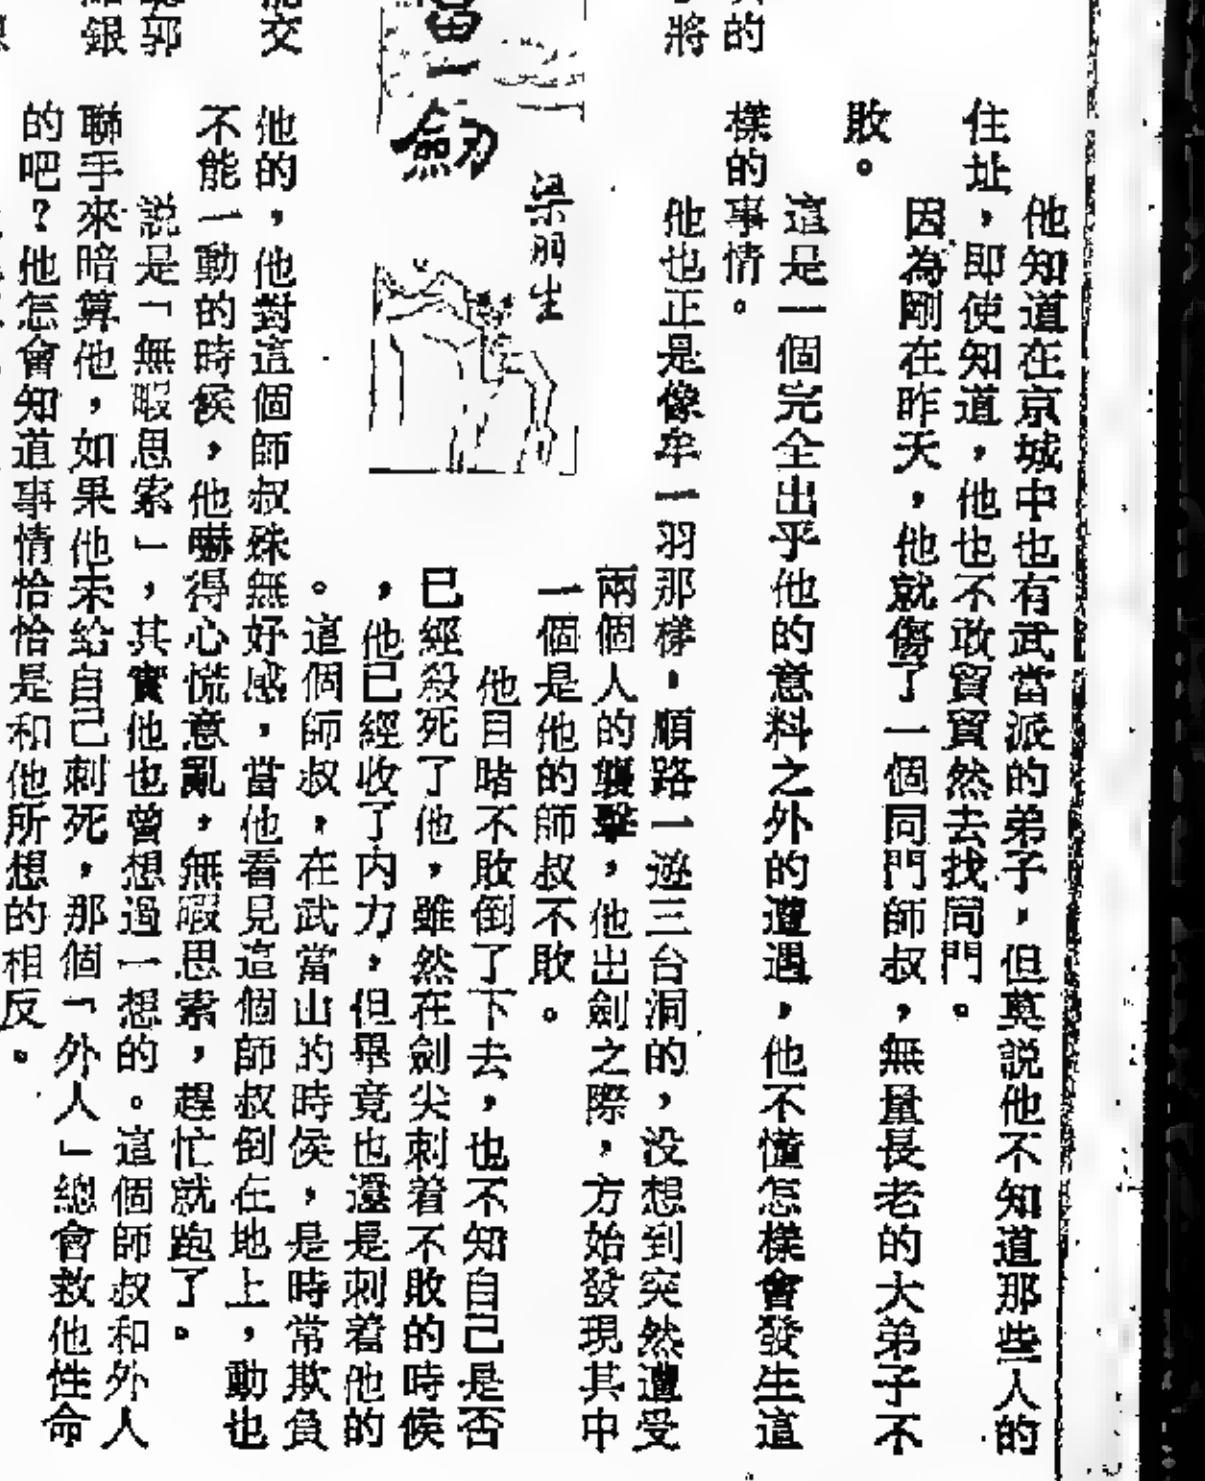 的
將
他知道在京城中也有武當派的弟子，但莫説他不知道那些人的
住址，即使知道，他也不敢貿貿然去找同門。
因為剛在昨天，他就傷了一個同門師叔，無量長老的大弟子不
敗。
這是一個完全出乎他的意料之外的遭遇，他不懂怎樣會發生這
樣的事情。
他也正是像牟一羽那樣，順路一遊三台洞的，没想到突然遭受
兩個人的襲擊，他出劍之際，方始發現其中
一個是他的師叔不敗。
梁羽生
當一劍
他目睹不敗倒了下去，也不知自己是否
已經殺死了他，雖然在劍尖刺着不敗的時候
，他已經收了内力，但畢竟也還是刺着他的
。這個師叔，在武當山的時侯，是時常欺負
交
他的，他對這個師叔殊無好感，當他看見這個師叔倒在地上，動也
不能一動的時候，他嚇得心慌意亂，無暇思索，趕忙就跑了。
郭
説是「無暇思索」，其實他也曾想過一想的。這個師叔和外人
銀
聯手來暗算他，如果他未給自己刺死，那個「外人」總會救他性命
的吧？他怎會知道事情恰恰是和他所想的相反。